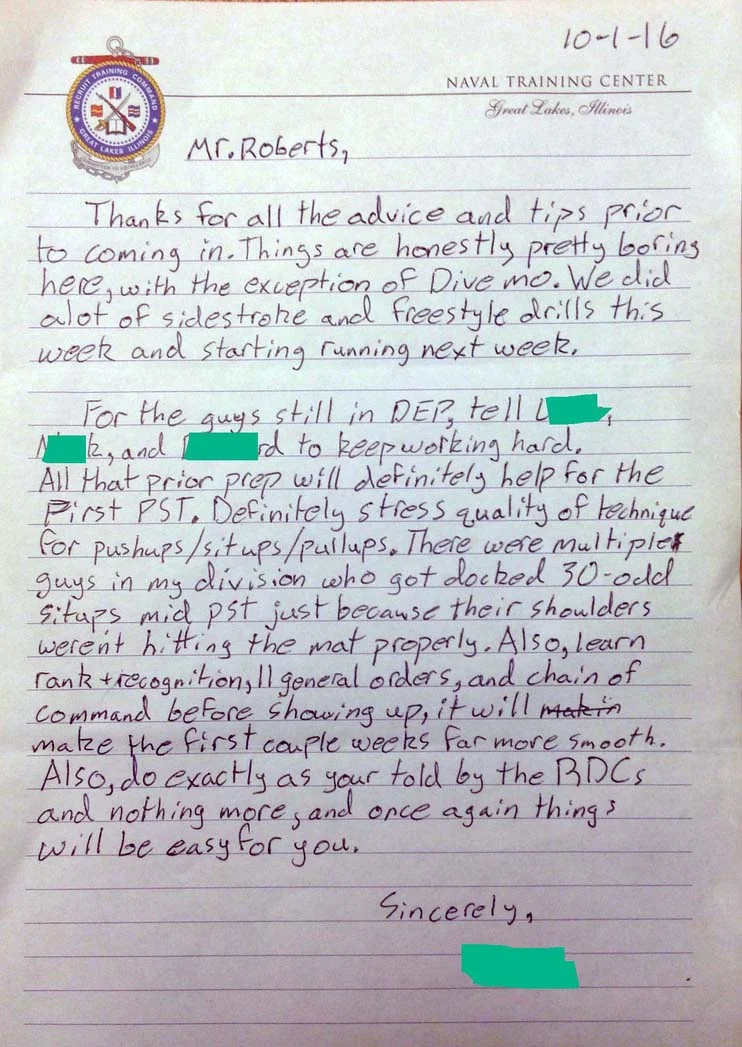 10-1-16
RECRUIT TRAINING COMMAND
GREAT LAKES ILLINOIS
NAVAL TRAINING CENTER
Great Lakes, Illinois
Mr. Roberts,
Thanks for all the advice and tips prior
to coming in. Things are honestly pretty boring
here, with the exception of Dive mo. We did
alot of sidestroke and freestyle drills this
week and starting running next week.
For the guys still in DEP, tell L
k, and rd to keep working hard.
All that prior prep will definitely help for the
First PST. Definitely stress quality of technique
for pushups/situps/pullups. There were multiple
guys in my division who got docked 30-odd
situps mid PST just because their shoulders
weren't hitting the mat properly. Also, learn
rank + recognition, 11 general orders, and chain of
command before showing up, it will makin
make the first couple weeks far more smooth.
Also, do exactly as your told by the RDCs
and nothing more, and once again things
will be easy for you.
Sincerely,